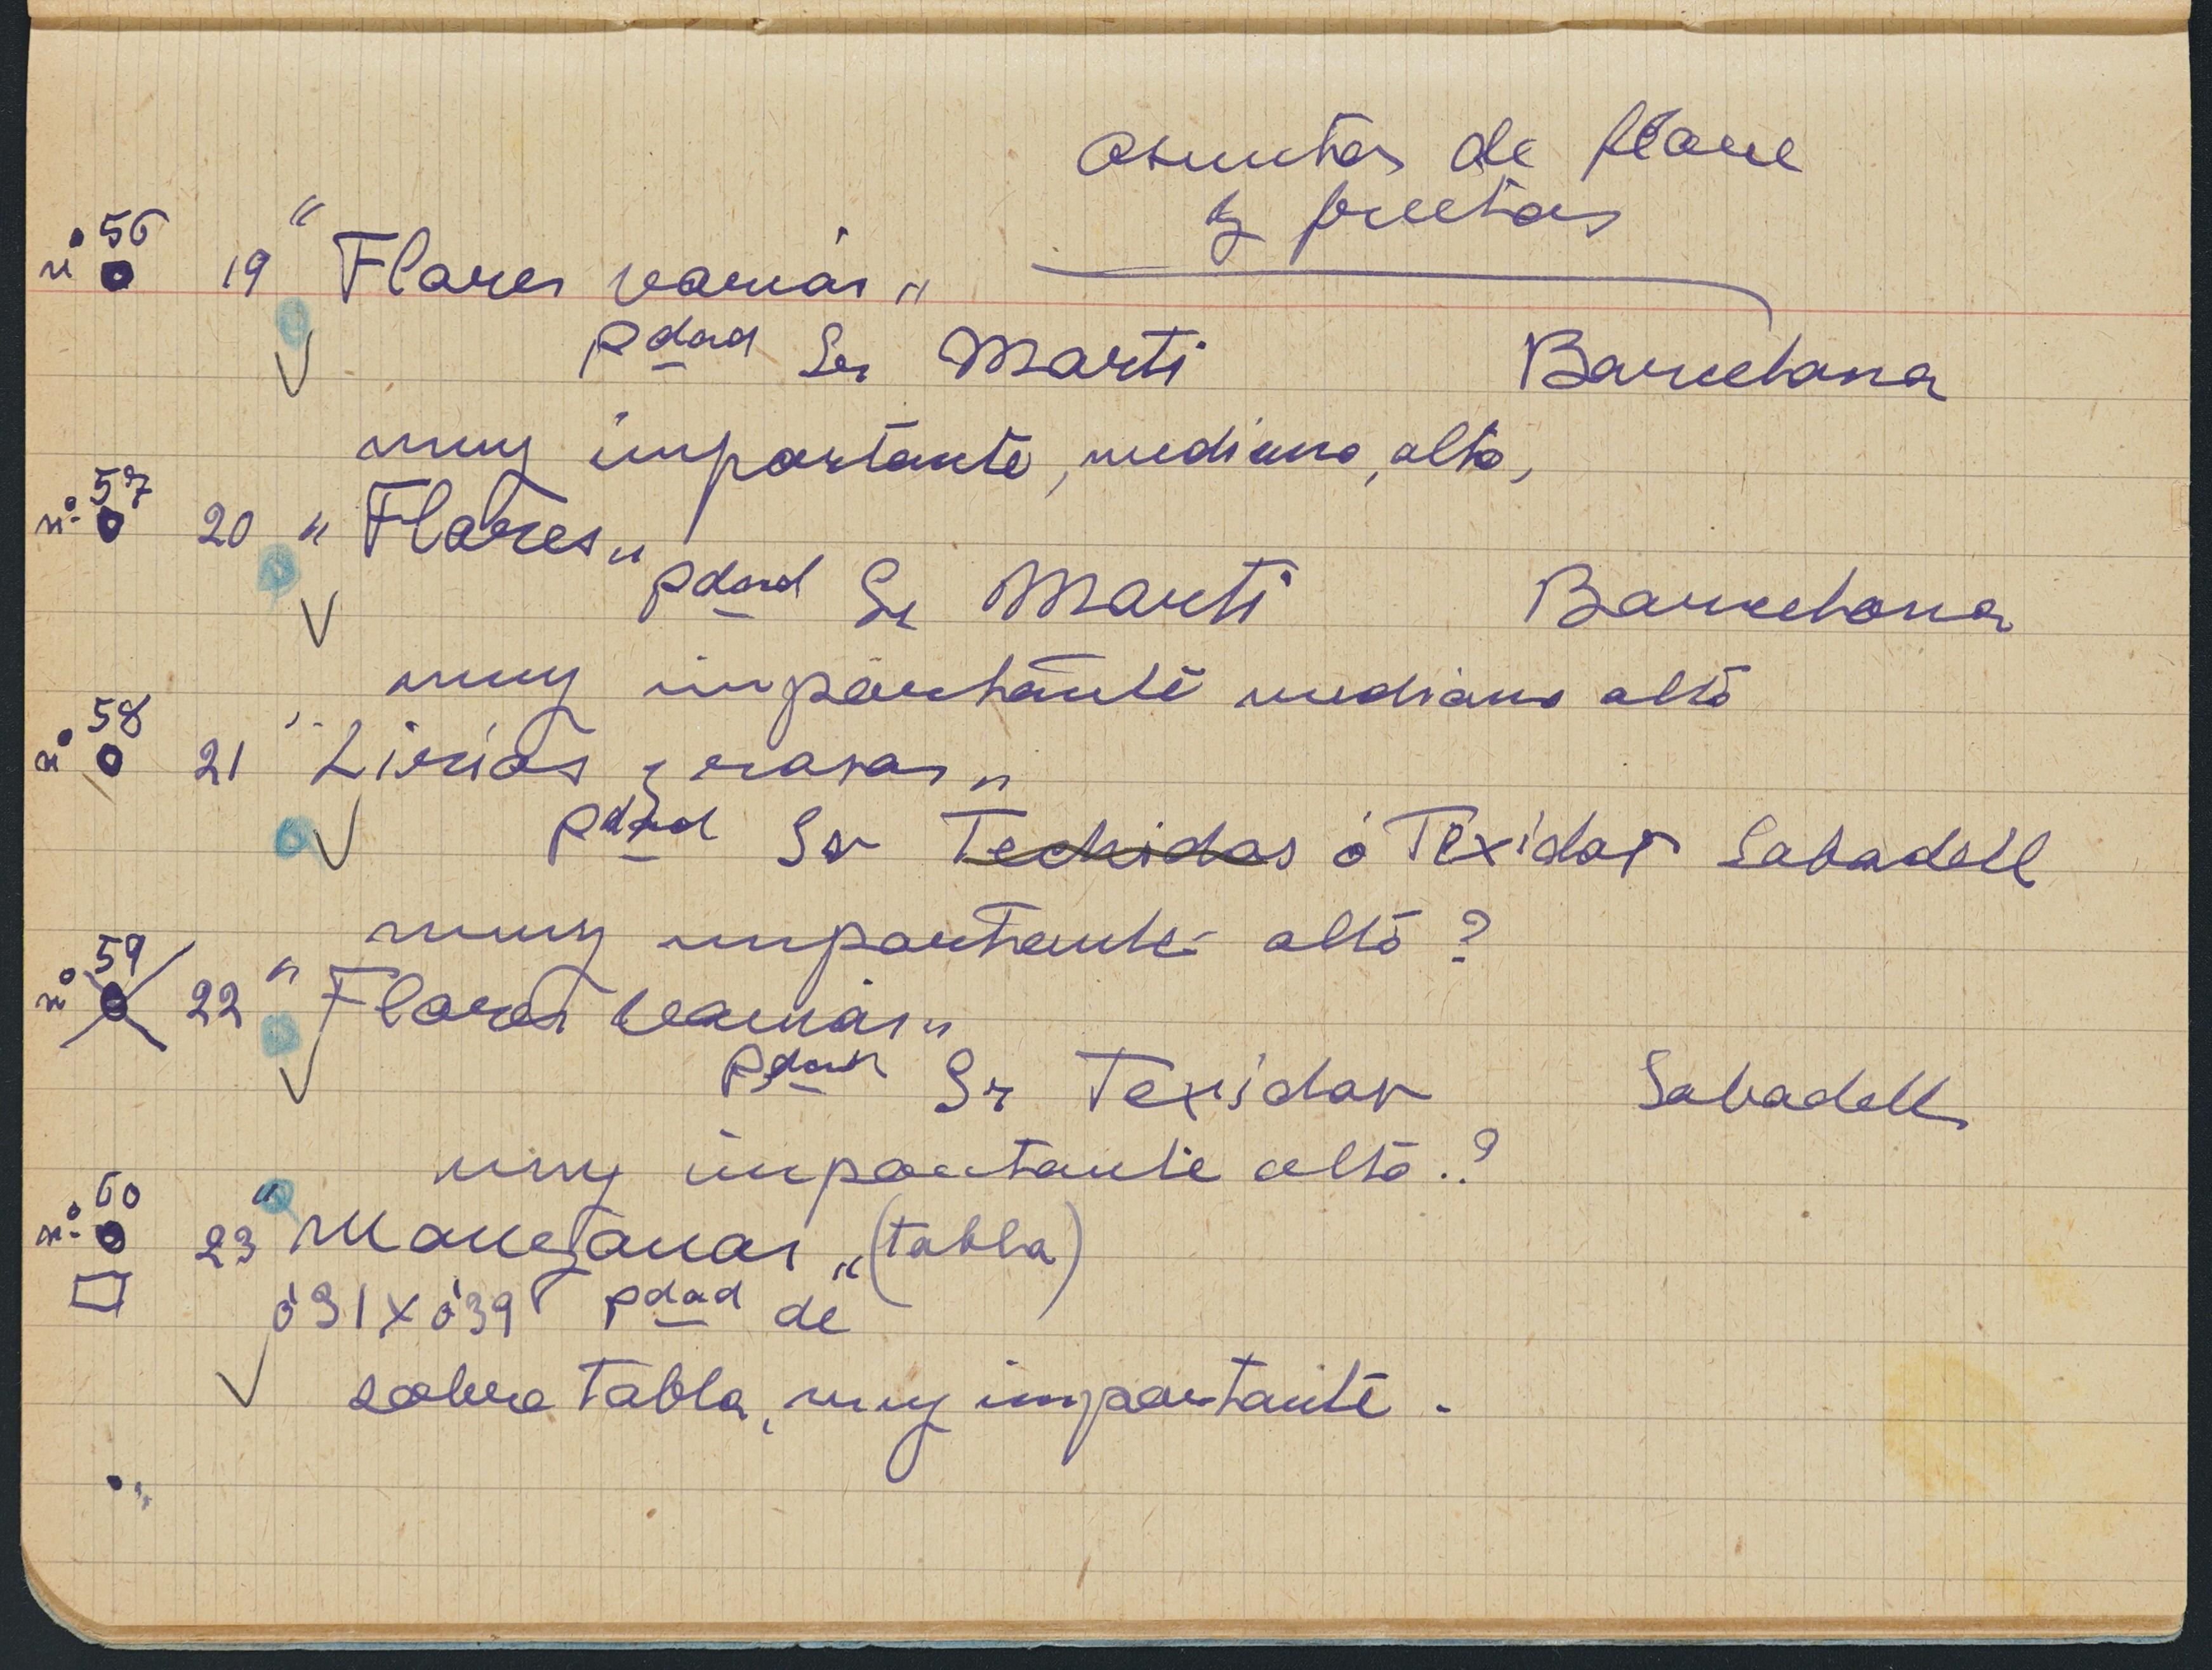 asuntos de flores
y frutas
nº 56 19 "Flores varias"
pdad Sr Marti Barcelona
muy importante, mediano, alto,
nº 57 20 "Flores"
pdad Sr Marti Barcelona
muy importante mediano alto
nº 58 21 "Lirios y rosas"
pdad Sr Techidos ó Texidor Sabadell
muy importante alto ?
nº 59 22 "Flores varias"
pdad Sr Texidor Sabadell
muy importante alto.?
nº 60 23 "Manzanas" (tabla)
0'31 x 0'39 pdad de
sobre tabla, muy importante.